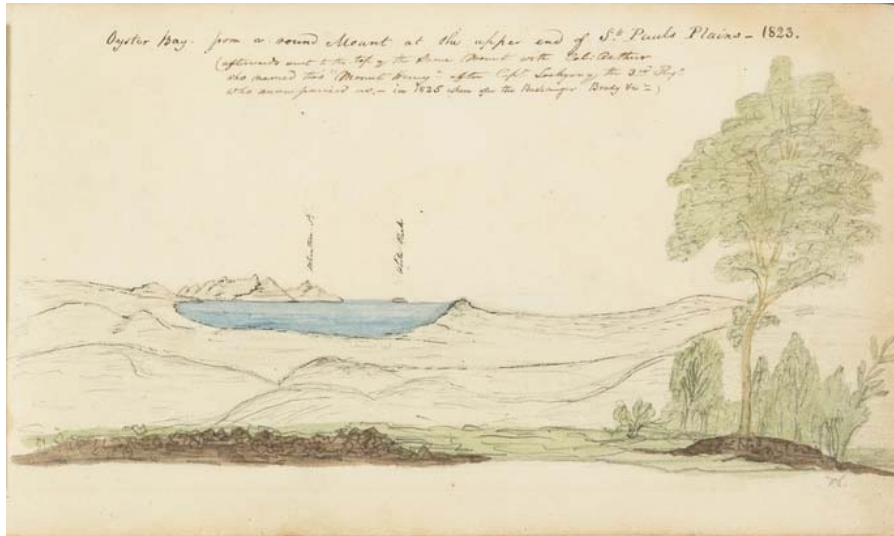 Oyster Bay. from a round Mount at the upper end of St. Pauls Plains - 1823.
(afterwards went to the top of the same Mount with Col: Arthur
who named this "Mount Henry" after Capt. the 3rd Regt.
who accompanied us, - in 1825 when after the Bushranger Brady &c - )
White Rock